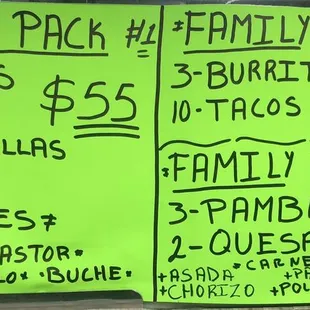 PACK #1
S
$55
LLAS
ES
ASTOR*
LO* *BUCHE*
*FAMILY
3-BURRIT
10-TACOS
*FAMILY
3-PAMB
2-QUESA
*CARNE
+ASADA +PA
+CHORIZO +POL